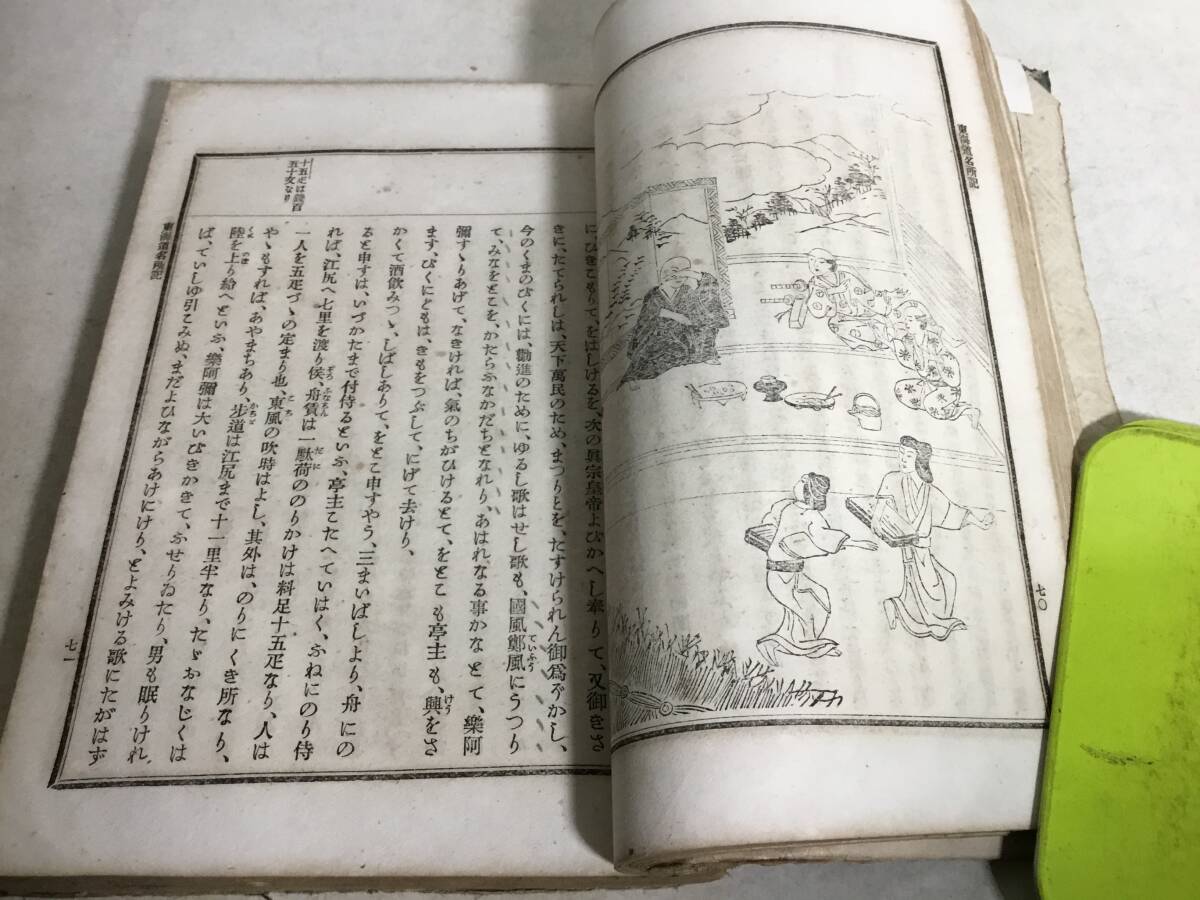 東海道名所記
七〇
十五疋は錢百
五十文なり
に、ひきこもりて、をはしけるを、次の眞宗皇帝よびかへし奉りて、又御きさ
きに、たてられしは、天下萬民のため、まつりとを、たすけられん御爲ぞかし、
今のくまのびくには、勸進のために、ゆるし歌はせし歌も、國風鄭風にうつり
て、みなをとこを、かたらふなかだちとなれり、あはれなる事かなとて、樂阿
彌すゝりあげて、なきければ、氣のちがひけるとて、をとこも亭主も、興をさ
ます、びくにどもは、きもをつぶして、にげて去けり、
かくて酒飮みつゝ、しばしありて、をとこ申すやう、三まいばしより、舟にの
ると申すは、いづかたまで付侍るといふ、亭主こたへていはく、ふねにのり侍
れば、江尻へ七里を渡り侯、舟賃は一駄荷ののりかけは料足十五疋なり、人は
一人を五疋づゝの定まり也、東風の吹時はよし、其外は、のりにくき所なり、
やゝもすれば、あやまちあり、步道は江尻まで十一里半なり、たゞおなじくは
陸を上り給へといふ、樂阿彌は大いびきかきて、ふせりゐたり、男も眠りけれ
ば、ていしゆ引こみぬ、まだよひながらあけにけり、とよみける歌にたがはず
東海道名所記
七一